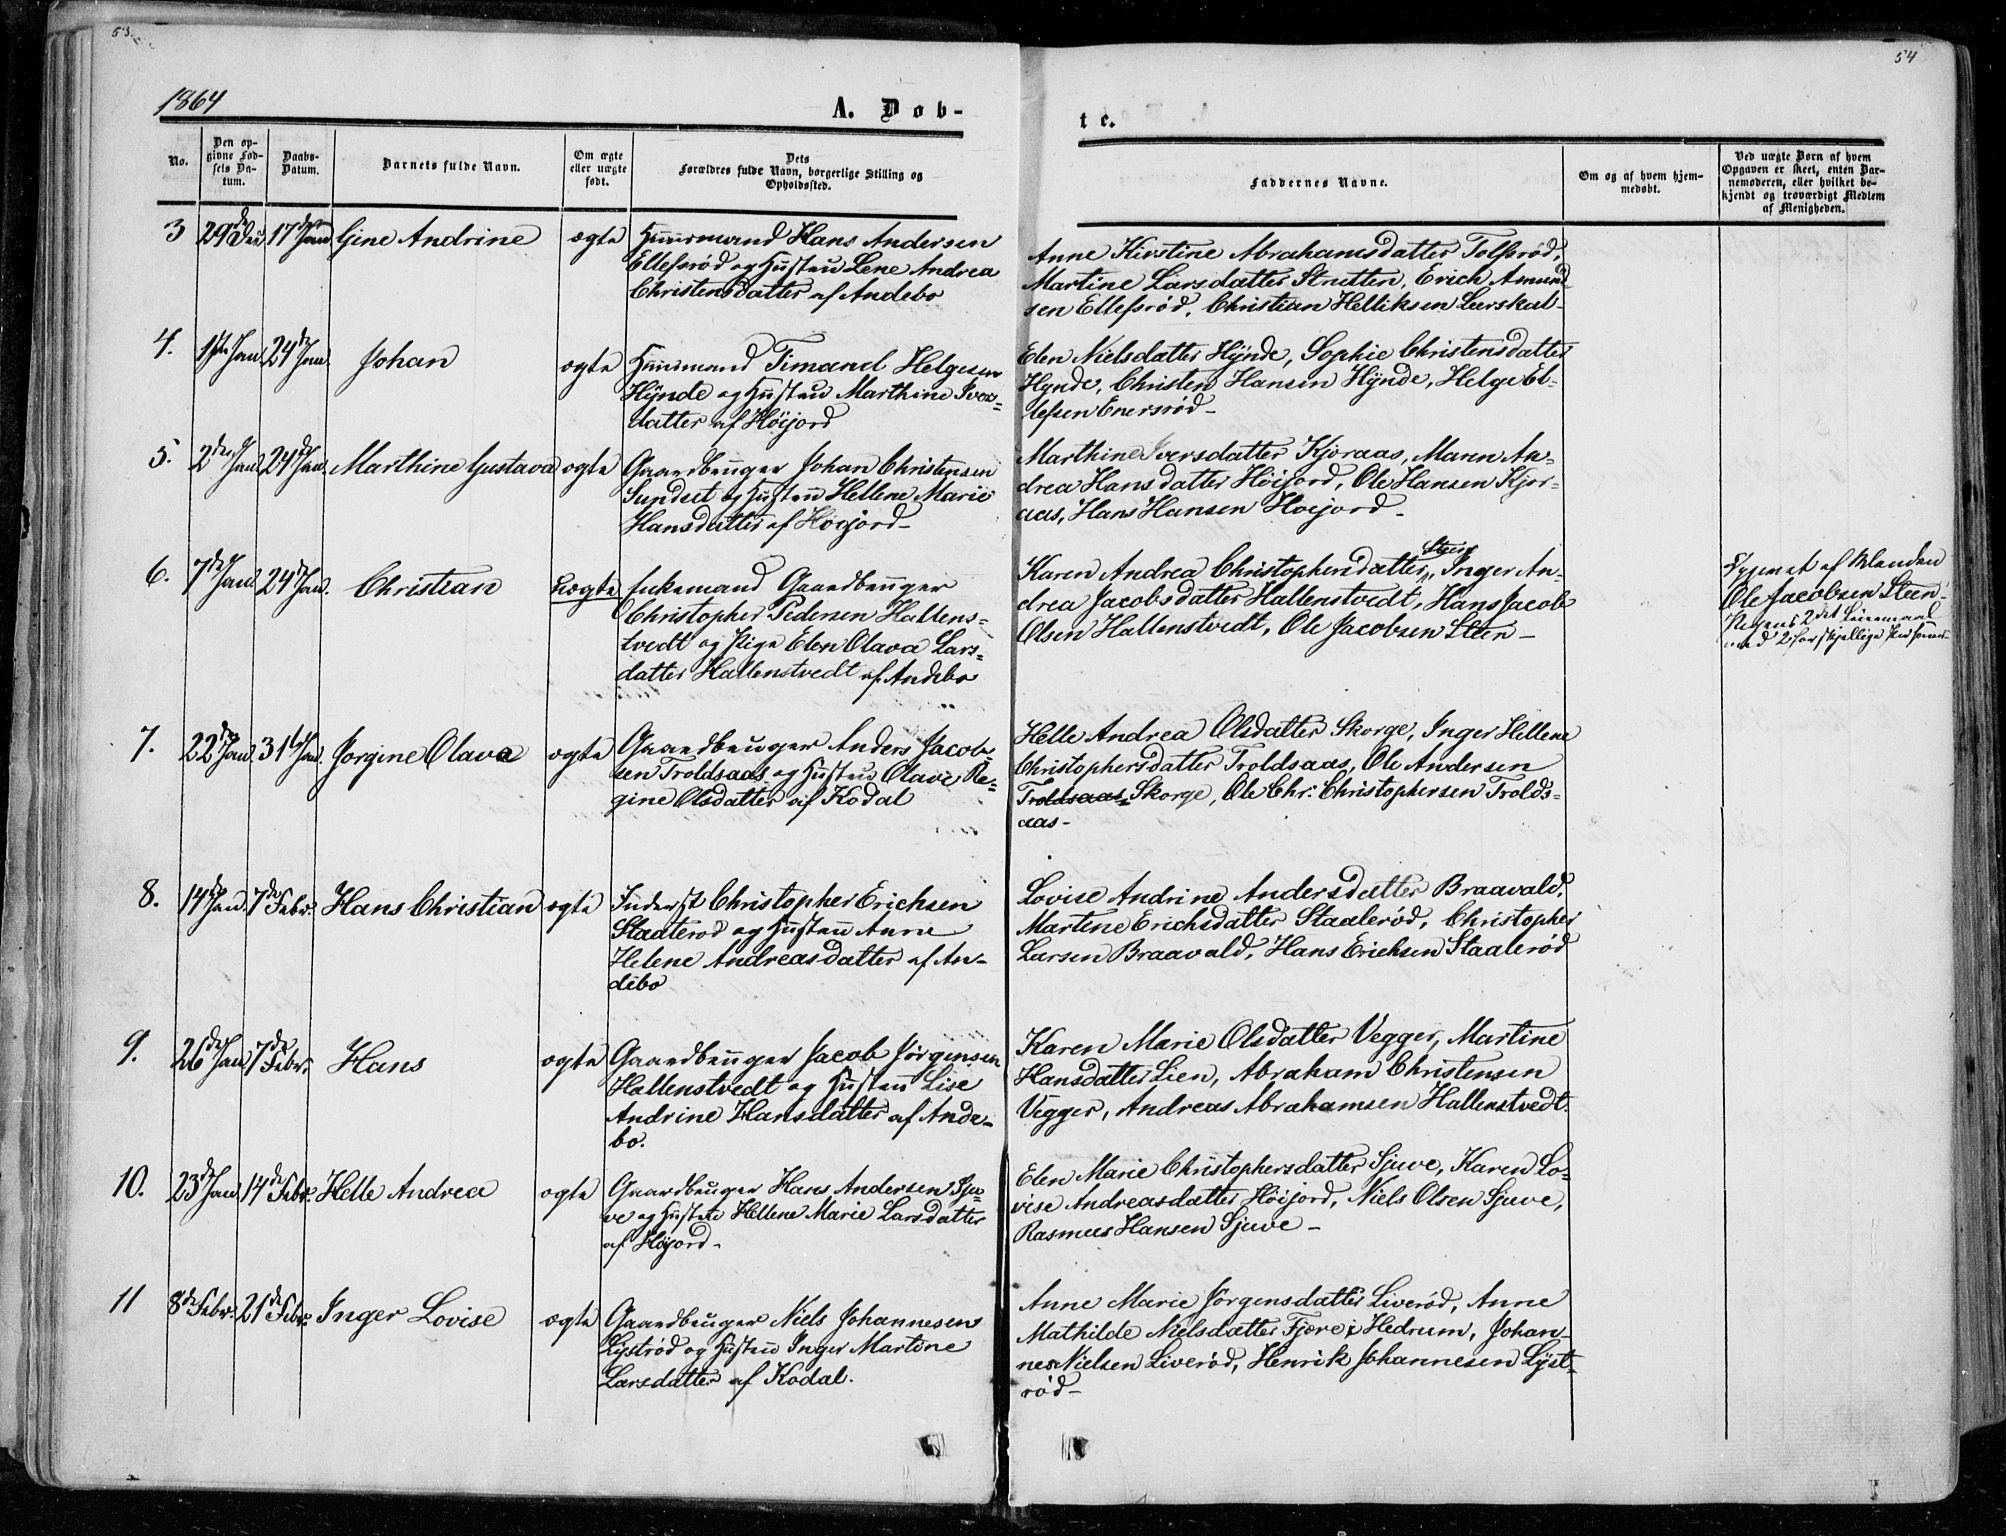 53.
54
1864
A. Døb-
te.
No.
Den op-
givne Fød-
sels Da-
tum.
Daabs-
Datum.
Barnets fulde Navn.
Om ægte
eller uægte
født.
Dets
Forældres fulde Navn, borgerlige Stilling og
Opholdssted.
Faddernes Navne.
Om og af hvem hjem-
medøbt.
Ved uægte Børn af hvem
Opgaven er skeet, enten Bar-
nemoderen, eller hvilket be-
kjendt og troværdigt Medlem
af Menigheden.
3 29de Dec 17de Jan Gine Andrine ægte Huusmand Hans Andersen
Ellefsrød og Hustru Lene Andrea
Christensdatter af Andebo
Anne Kirstine Abrahamsdatter Tolfsrød,
Martine Larsdatter Strutten, Erich Amund-
sen Ellefsrød, Christian Helliksen Lerskal-
4. 1ste Jan. 24de Jan. Johan ægte Huusmand Timand Helgesen
Hÿnde og Hustru Marthine Ivers-
datter af Höijord
Elen Nielsdatter Hÿnde, Sophie Christensdatter
Hynde, Christen Hansen Hÿnde, Helge El-
lefsen Enersrød-
5. 2den Jan. 24de Jan. Marthine Gustava ægte Gaardbruger Johan Christensen
Sundset og Hustru Hellene Marie
Hansdatter af Höijord-
Marthine Iversdatter Kjøraas, Maren An-
drea Hansdatter Höijord, Ole Hansen Kjør-
aas, Hans Hansen Höijord-
6. 7de Jan. 24de Jan. Christian Uægte Enkemand Gaardbruger
Christopher Pedersen Hallens-
tvedt og Pige Elen Olava Lars-
datter Hallenstvedt af Andebo
Karen Andrea Christophersdatter Steen, Inger An-
drea Jacobsdatter Hallenstvedt, Hans Jacob
Olsen Hallenstvedt, Ole Jacobsen Steen-
Ole Jacobsen Steen.
Pigens 2det Leiermaal
med 2 forskjellige Personer
7. 22de Jan. 31te Jan. Jørgine Olava ægte Gaardbruger Anders Jacob-
sen Troldsaas og Hustru Olave Re-
gine Olsdatter af Kodal
Helle Andrea Olsdatter Skorge, Inger Hellene
Christophersdatter Troldsaas, Ole Andersen
Troldsaas Skorge, Ole Chr. Christophersen Trolds-
aas-
8. 14de Jan. 7de Febr. Hans Christian ægte Inderst Christopher Erichsen
Staalerød og Hustru Anne
Helene Andreasdatter af An-
debo
Lovise Andrine Andersdatter Braavald,
Martine Erichsdatter Staalerød, Christopher
Larsen Braavald, Hans Erichsen Staalerød
9. 26de Jan 7de Febr. Hans ægte Gaardbruger Jacob Jørgensen
Hallenstvedt og Hustru Lise
Andrine Hansdatter af Ande-
bo.
Karen Marie Olsdatter Vegger, Martine
Hansdatter Lien, Abraham Christensen
Vegger, Andreas Abrahamsen Hallenstvedt.
10. 23de Jan 14de Febr. Helle Andrea ægte Gaardbruger Hans Andersen Sju-
ve og Hustru Hellene Marie Larsdatter
af Höijord-
Elen Marie Christophersdatter Sjuve, Karen Lo-
vise Andreasdatter Höijord, Niels Olsen Sjuve,
Rasmus Hansen Sjuve-
11 8de Febr. 21de Febr. Inger Lovise ægte Gaardbruger Niels Johannesen
Lystrød og Hustru Inger Martine
Larsdatter af Kodal.
Anne Marie Jörgensdatter Liverød, Anne
Mathilde Nielsdatter Fjære i Hedrum, Johan-
nes Nielsen Liverød, Henrik Johannesen Lÿst-
rød-